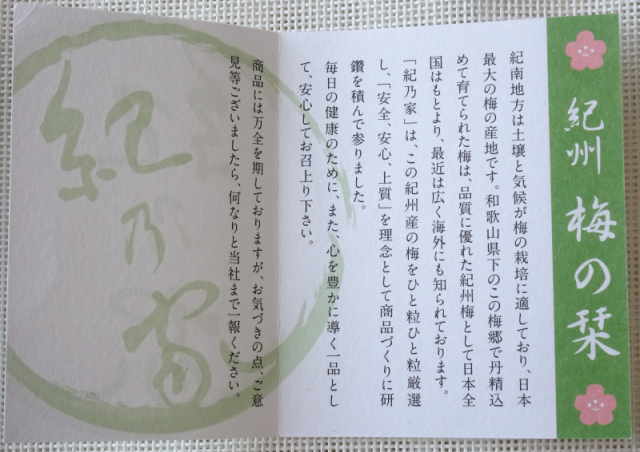 紀州 梅の栞
紀南地方は土壌と気候が梅の栽培に適しており、日本
最大の梅の産地です。和歌山県下のこの梅郷で丹精込
めて育てられた梅は、品質に優れた紀州梅として日本全
国はもとより、最近は広く海外にも知られております。
「紀乃家」は、この紀州産の梅をひと粒ひと粒厳選
し、「安全、安心、上質」を理念として商品づくりに研
鑽を積んで参りました。
毎日の健康のために、また、心を豊かに導く一品とし
て、安心してお召上り下さい。
商品には万全を期しておりますが、お気づきの点、ご意
見等ございましたら、何なりと当社まで一報ください。
紀乃家